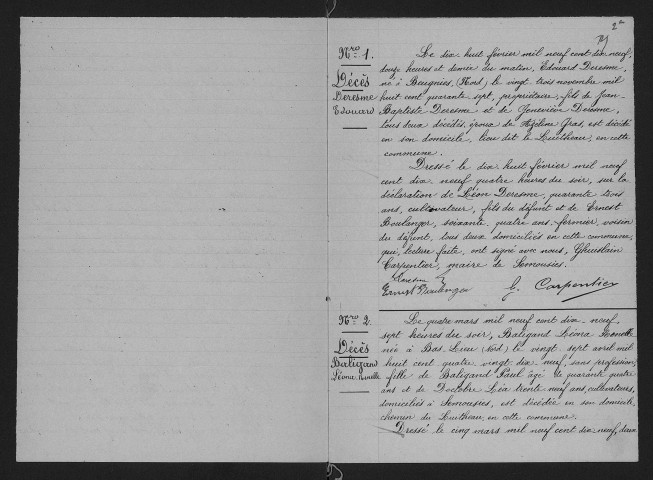 2e
Nro 1.
Décès
Deresme
Edouard
Le dix huit février mil neuf cent dix neuf,
heures et demie du matin, Edouard Deresme,
né à Beugnies, (Nord) le vingt trois novembre mil
huit cent quarante sept, propriétaire, fils de Jean
Baptiste Deresme et de Geneviève
tous deux décédés, époux de Gras, est décédé
en son domicile, lieu dit le en cette
commune.
Dressé le dix huit février mil neuf
cent dix neuf quatre heures du soir, sur la
déclaration de Léon Deresme, quarante trois
ans, cultivateur, fils du défunt et de Ernest
Boulanger, soixante quatre ans, fermier, voisin
du défunt, tous deux domiciliés en cette commune,
qui, lecture faite, ont signé avec nous, Ghuislain
Carpentier, maire de Semousies.
Deresme
Ernest Boulanger
G. Carpentier
Nro 2.
Décès
Baligand
Léona
Le quatre mars mil neuf cent dix neuf,
sept heures du soir, Baligand Léona
née à Bas-Lieu (Nord) le vingt sept avril mil
huit cent quatre vingt dix neuf, sans profession,
fille de Baligand Paul âgé de quarante quatre
ans et de Doctobre Léa trente neuf ans, cultivateurs,
domiciliés à Semousies, est décédée en son domicile,
chemin du en cette commune.
Dressé le cinq mars mil neuf cent dix neuf, deux